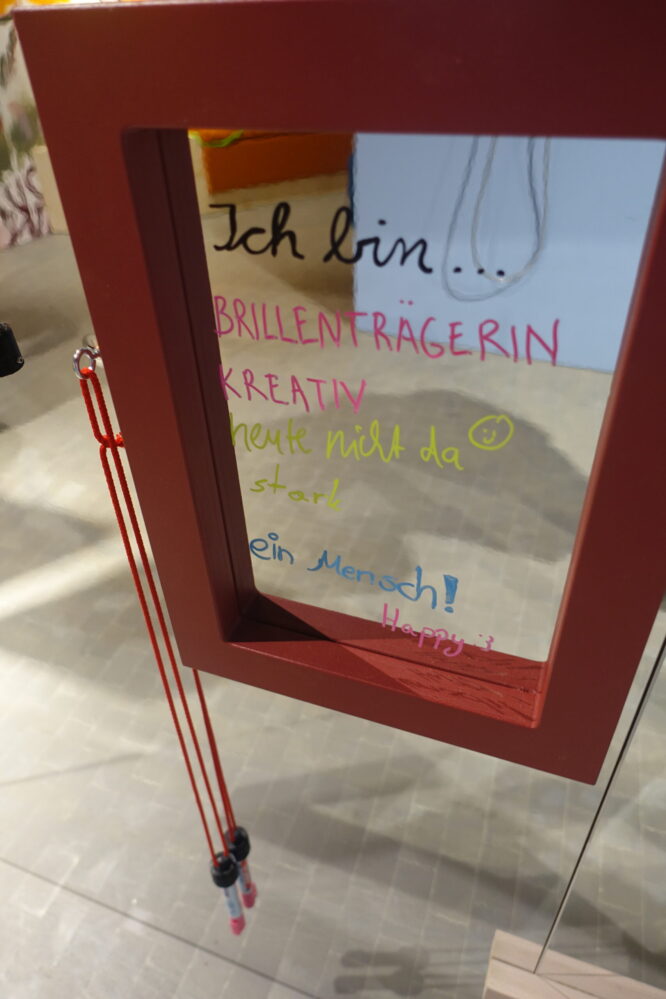 Ich bin...
BRILLENTRÄGERIN
KREATIV
heute nicht da
stark
ein Mensch!
Happy :3